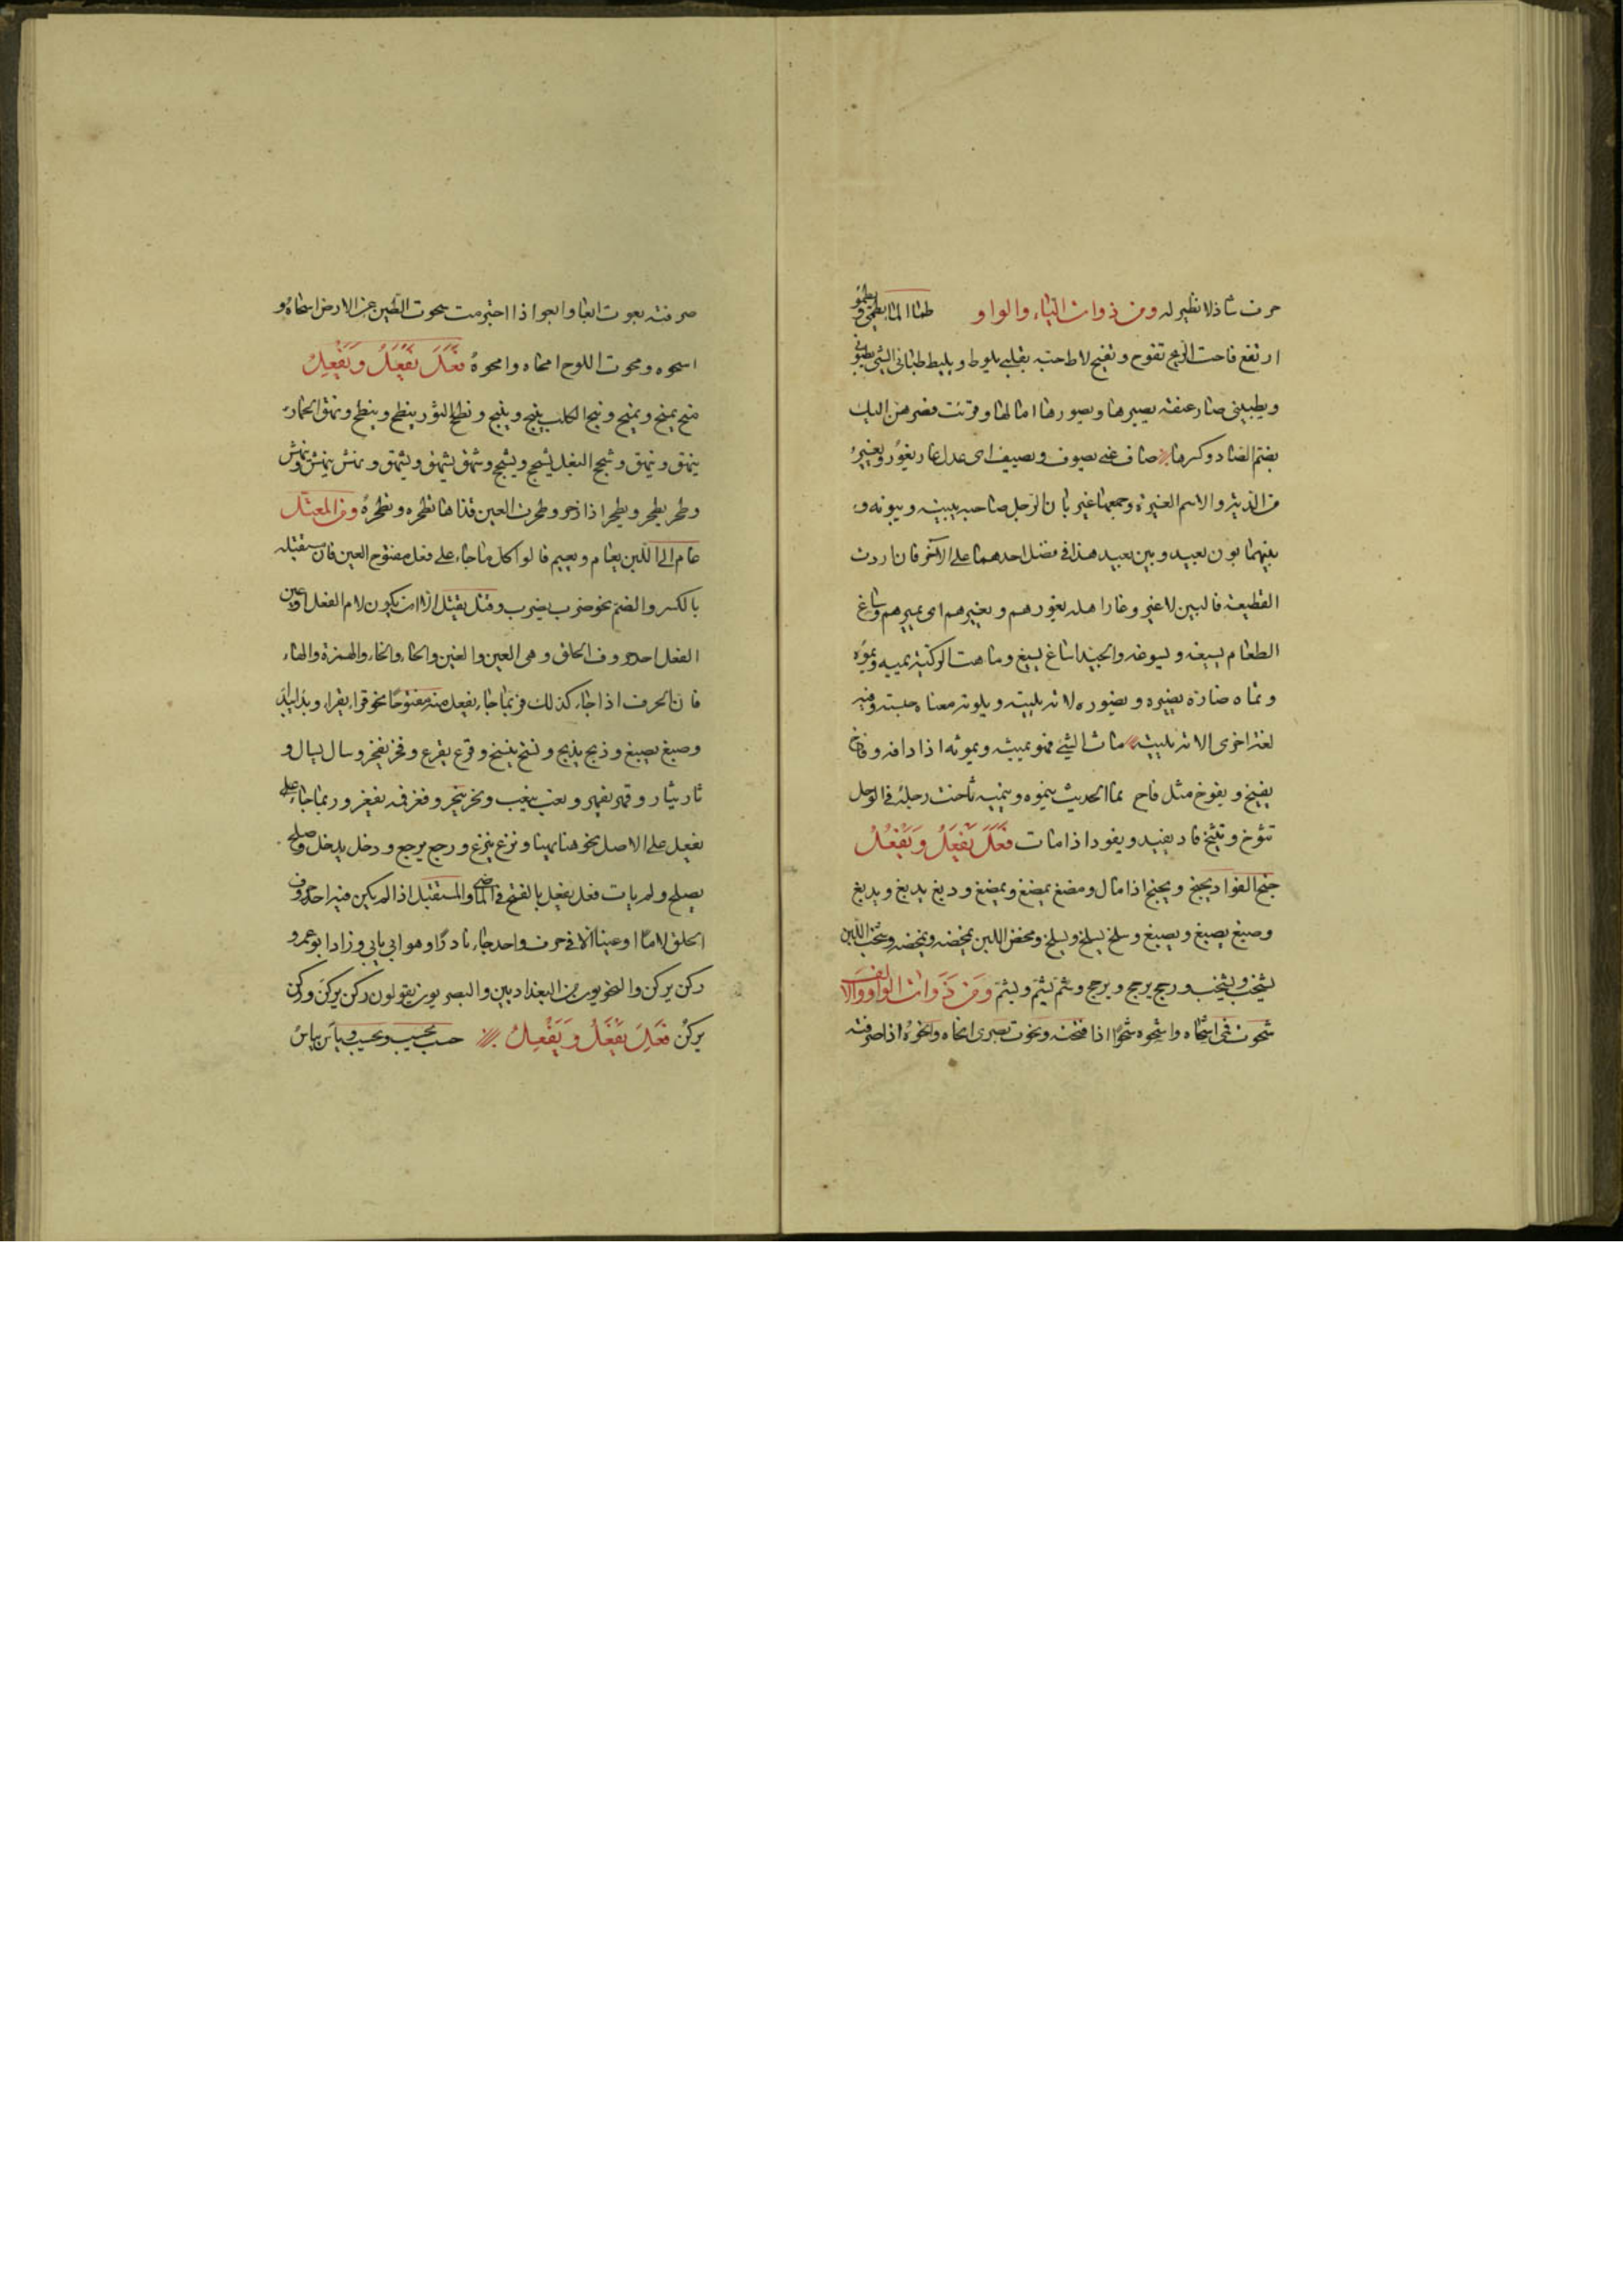 حرف شاذ لا نظير له ومن ذوات الياء والواو طما الماء يطمي ويطمو
ارتفع فاحت الريح تفوح وتفيح لاط حبه بقلبي يلوط ويليط طباني الشي يطبوني
ويطبيني صار عنقه يصيرها ويصورها امالها وقرئت فصرهن اليك
بضم الصاد وكسرها صاف عني يصوف ويصيف اي عدل غار يغور ويغير
من الدية والاسم الغيرة وجمعها غير بان الرجل صاحبه يبينه ويبونه و
بينهما بون بعيد وبين بعيد هذا في فضل احدهما على الآخر فان اردت
القطيعة فالبين لا غير وغار اهله يغورهم ويغيرهم اي يميرهم وساغ
الطعام يسيغه ويسوغه والجيد اساغ يسيغ وماهت الركية تميه وتموه
وتماه ضاره يضيره ويضوره لاته يليته ويلوته معناه حبسه وفيه
لغة اخرى الاته يليته ماث الشي فهو يميثه ويموثه اذا دافه وفاخ
يفيخ ويفوخ مثل فاح نما الحديث ينموه وينميه ثاخت رجله في الوحل
تثوخ وتثيخ فاد يفيد ويفود اذا مات فعل يفعل ويفعل
جنح الفؤاد يجنح ويجنح اذا مال ومضغ يمضغ ويمضغ ودبغ يدبغ ويدبغ
وصبغ يصبغ ويصبغ وسلخ يسلخ ويسلخ ومخض اللبن يمخضه ويمخضه وشخب اللبن
يشخب ويشخب ورجح يرجح ويرجح وشم يشم ويشم ومن ذوات الواو والالف
شحوت في اشحاه واشحوه شحوا اذا فتحته ونحوت بصري انحاه وانحوه اذا صرفته
صرفته بعوت ابعا وابعو اذا اجترمت سحوت الطين عن الارض اسحاه و
اسحوه ومحوت اللوح امحاه وامحوه فعل يفعل ويفعل
منح يمنح ويمنح ونبح الكلب ينبح وينبح ونطح الثور ينطح وينطح ونهق الحمار
ينهق وينهق وشحج البغل يشحج ويشحج وشهق يشهق ويشهق ونهش ينهش وينهش
وطحر يطحر ويطحر اذا زحر وطحرت العين قذاها تطحره وتطحره ومن المعتل
عام الى اللبن يعام ويعيم قالوا كل ما جاء على فعل مفتوح العين فان مستقبله
بالكسر والضم نحو ضرب يضرب وقتل يقتل الا ان يكون لام الفعل او عين
الفعل احد حروف الحلق وهي العين والغين والحاء والخاء والهمزة والهاء
فان الحرف اذا جاء كذلك فربما جاء يفعل منه مفتوحا نحو قرا يقرا وبذا يبذا
وصبغ يصبغ وذبح يذبح ونسخ ينسخ وقرع يقرع وفخر يفخر وسال يسال و
ثار يثار وقهر يقهر ونعب ينعب ونحر ينحر وفغر فمه يفغر وربما جاء على
يفعل على الاصل نحو هنا يهنا ونزع ينزع ورجع يرجع ودخل يدخل وصلح
يصلح ولم يات فعل يفعل بالفتح في الماضي والمستقبل اذا لم يكن فيه احد حروف
الحلق لاما او عينا الا في حرف واحد جاء نادرا وهو ابى يابى وزاد ابو عمرو
ركن يركن والنحويون من البغداديين والبصريين يقولون ركن يركن وركن
يركن فعل يفعل ويفعل حسب يحسب ويحسب ويئس ييئس